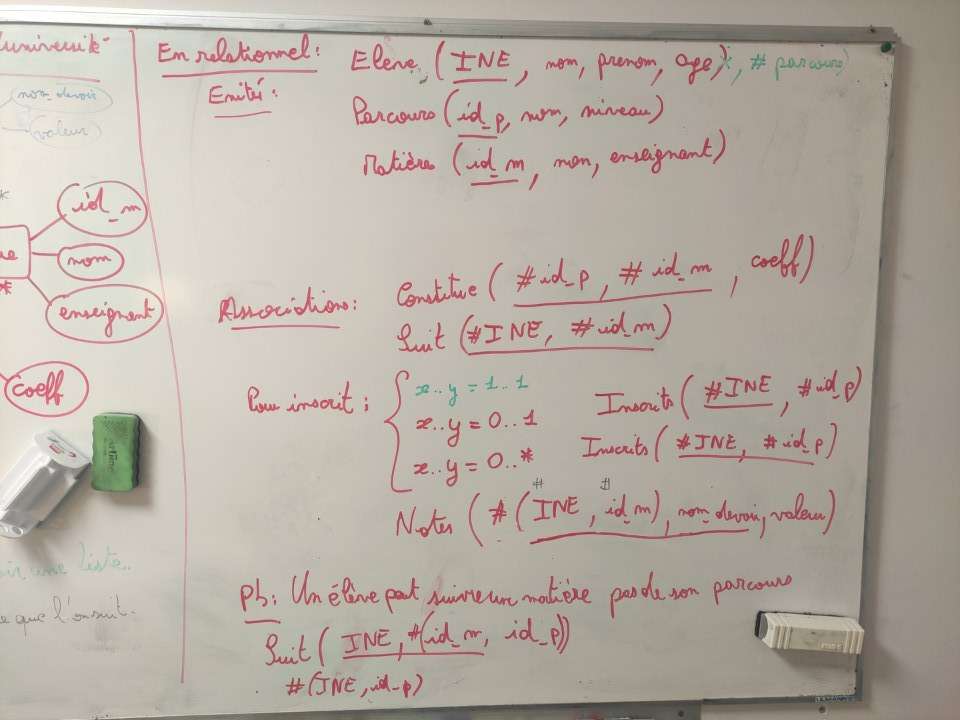 l'université
nom_devoir
valeur
id_m
nom
enseignant
*
coeff
oir une liste..
e que l'on suit.
En relationnel:
Elève (INE, nom, prenom, age), # parcours)
Enité:
Parcours (id_p, nom, niveau)
Matière (id_m, nom, enseignant)
Associations:
Constitue (#id_p, # id_m, coeff)
Suit (#INE, #id_m)
Pour inscrit:
x..y = 1..1
x..y = 0..1 Inscrits (#INE, #id_p)
x..y = 0..* Inscrits (#INE, #id_p)
# #
Notes (# (INE, id_m), nom_devoir, valeur)
Pb: Un élève peut suivre un matière pas de son parcours
Suit (INE, #(id_m, id_p))
#(INE, id_p)